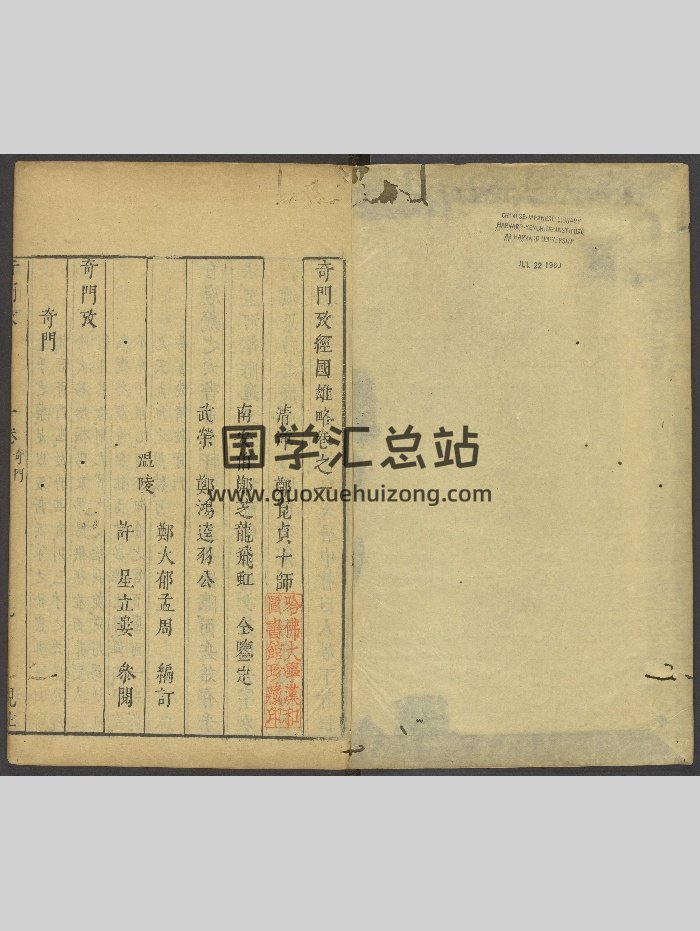 奇門攷經國雄略卷之
清漳 鄭崑貞十師
南安伯鄭芝龍飛虹 仝鑒定
武榮 鄭鴻逵羽公
溫陵
鄭大郁孟周 編訂
許 星立娄 參閱
奇門攷
奇門
卷 奇門
哈佛大學漢和
圖書館珍藏印
CHINESE-JAPANESE LIBRARY
HARVARD-YENCHING INSTITUTE
AT HARVARD UNIVERSITY
JUL 22 1980
国学汇总站
www.guoxuehuizong.com